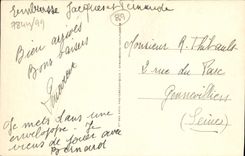 Embrasse Jacques et Fernande
7844/99
89
Bien arrivés
Bons baisers
Monsieur R. Thibault
2 rue du Parc
Gennevilliers
(Seine)
Je mets dans une
enveloppe. Je
viens de jouer avec
Bernard